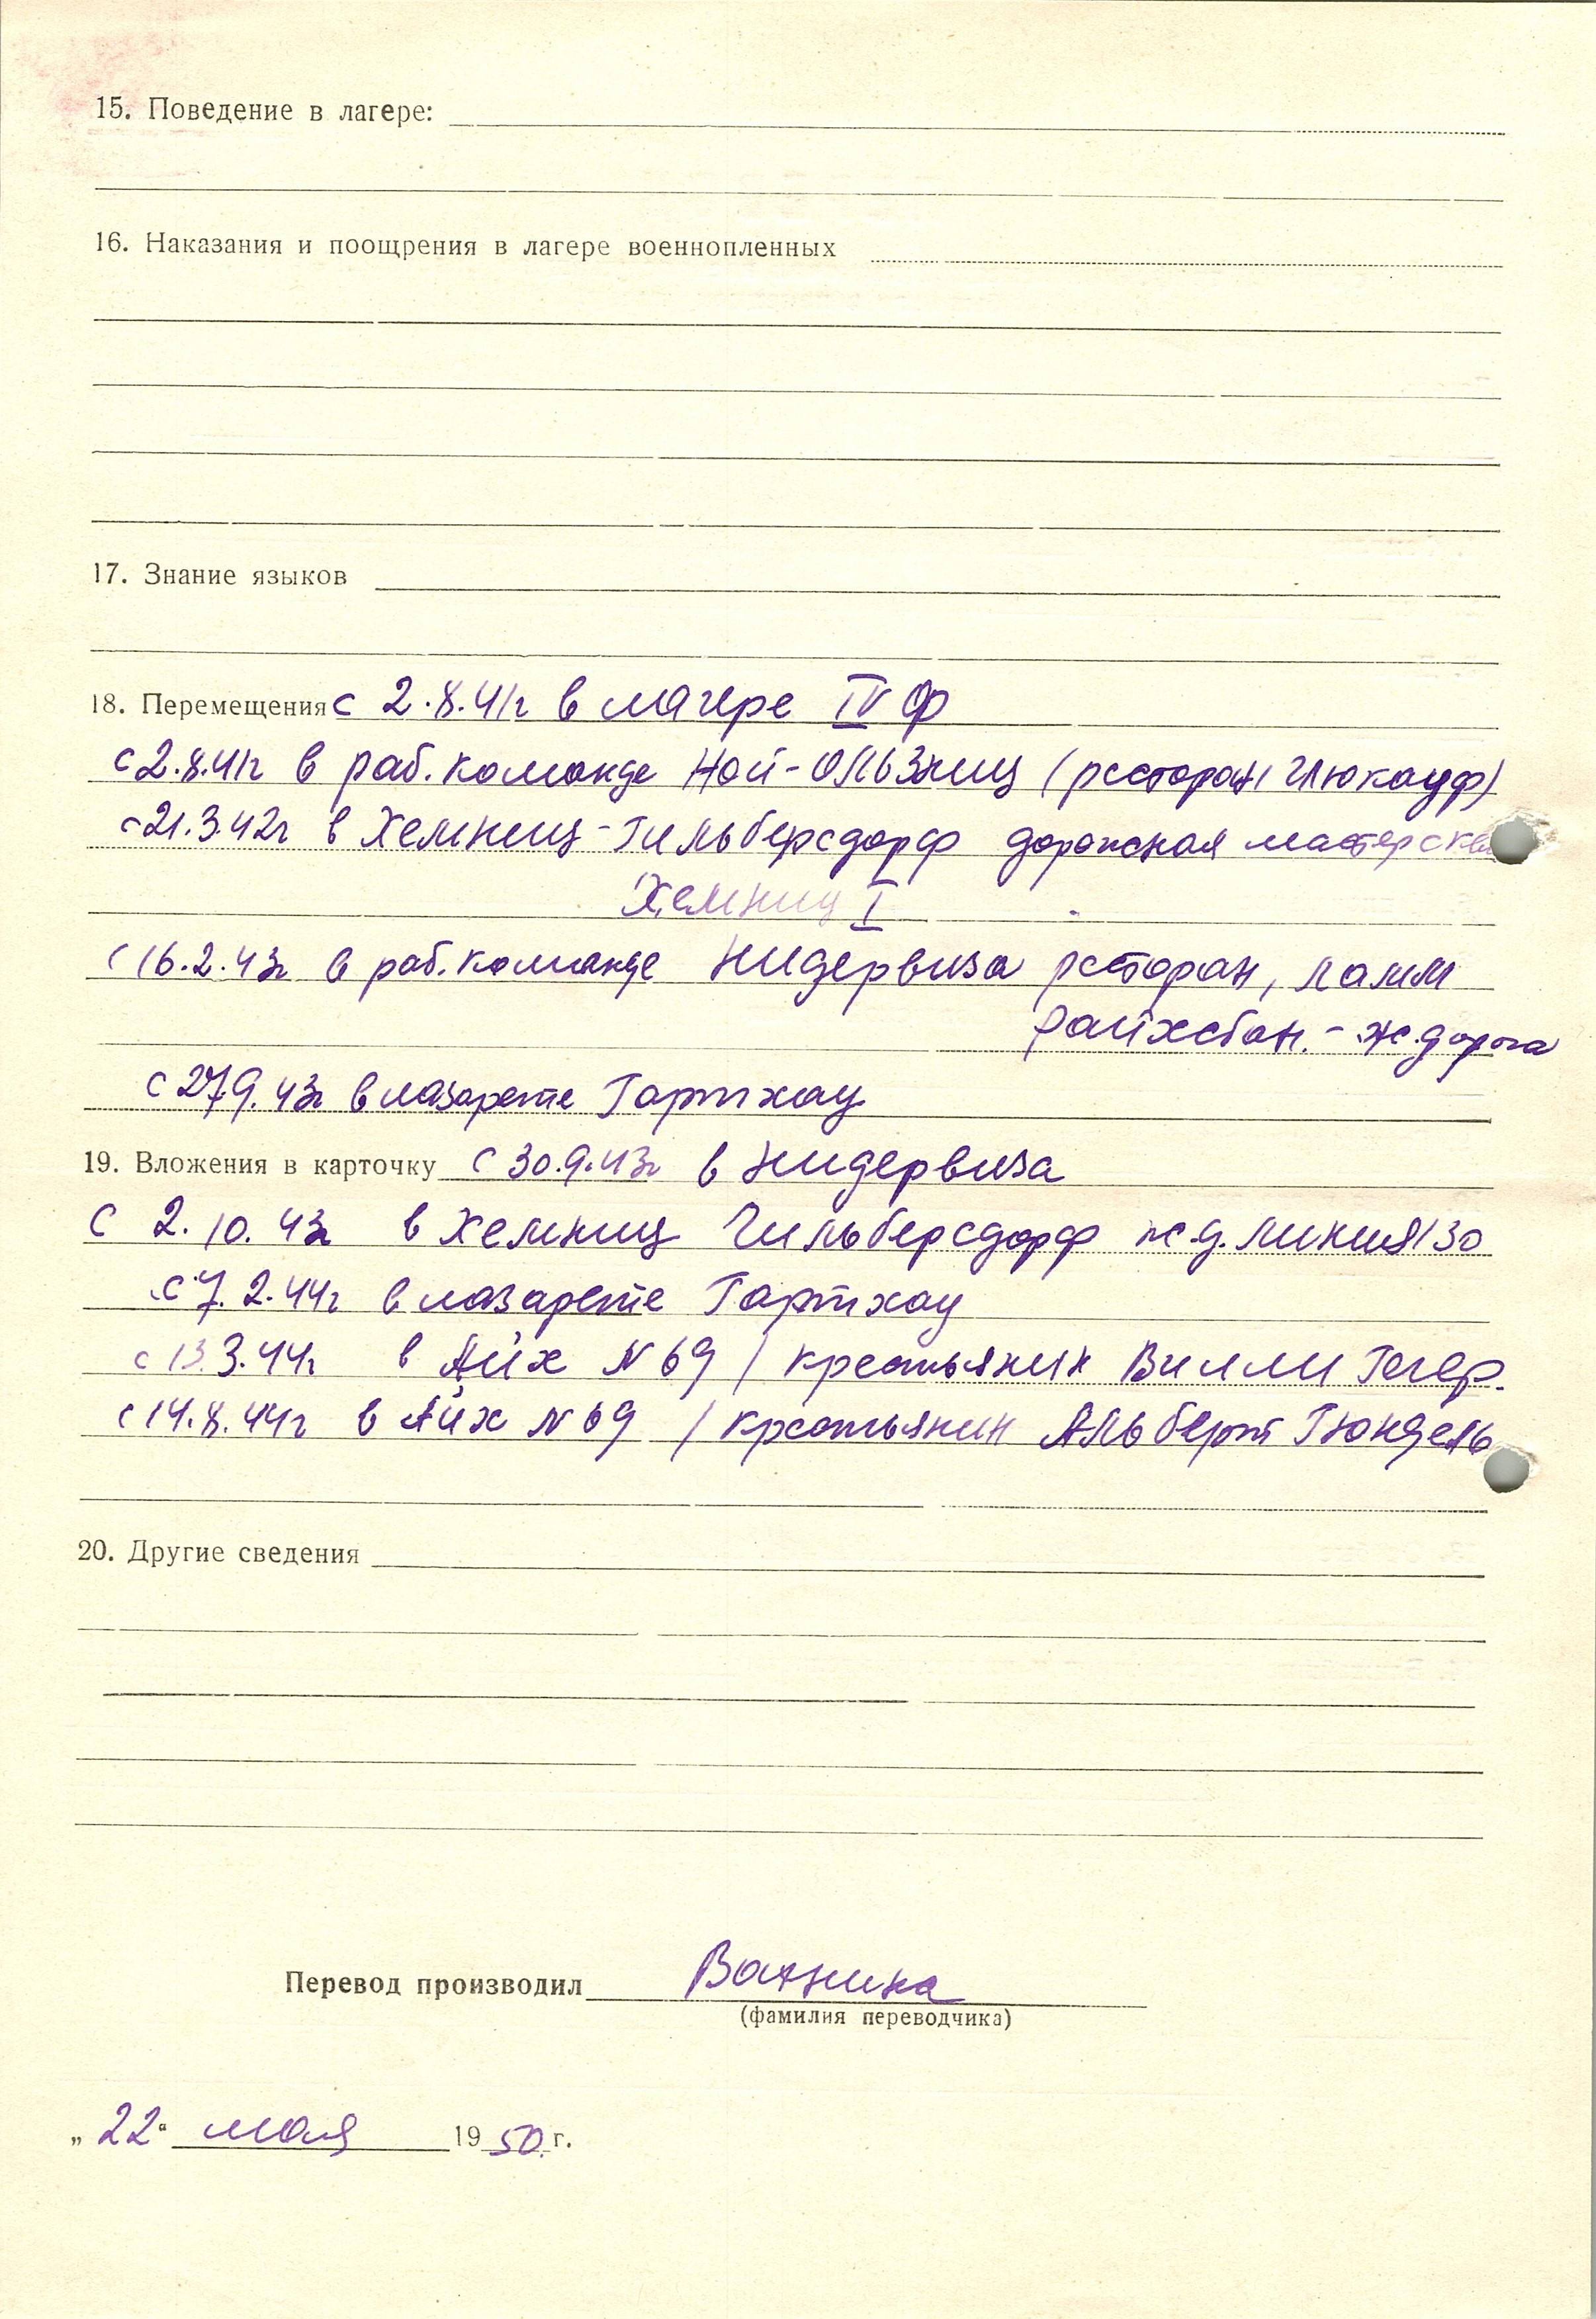 15. Поведение в лагере:
16. Наказания и поощрения в лагере военнопленных
17. Знание языков
18. Перемещения с 2.8.41г в лагере IV Ф
с 2.8.41г в раб. команде Ной-Ользниц (ресторан Глюкауф)
с 21.3.42г в Хемниц-Гильберсдорф дорожная мастерская
Хемниц I
с 16.2.43г в раб. команде Нидервиза ресторан, Ламм
Райхсбан. - ж. дорога
с 27.9.43г в лазарете Гартхау
19. Вложения в карточку с 30.9.43г в Нидервиза
с 2.10.43г в Хемниц Гильберсдорф ж.д. линия 130
с 7.2.44г в лазарете Гартхау
с 13.3.44г в Айх N 69 / крестьянин Вилли Гегер.
с 14.8.44г в Айх N 69 / крестьянин Альберт Гюндель
20. Другие сведения
Перевод производил
(фамилия переводчика)
„22“ мая 1950 г.